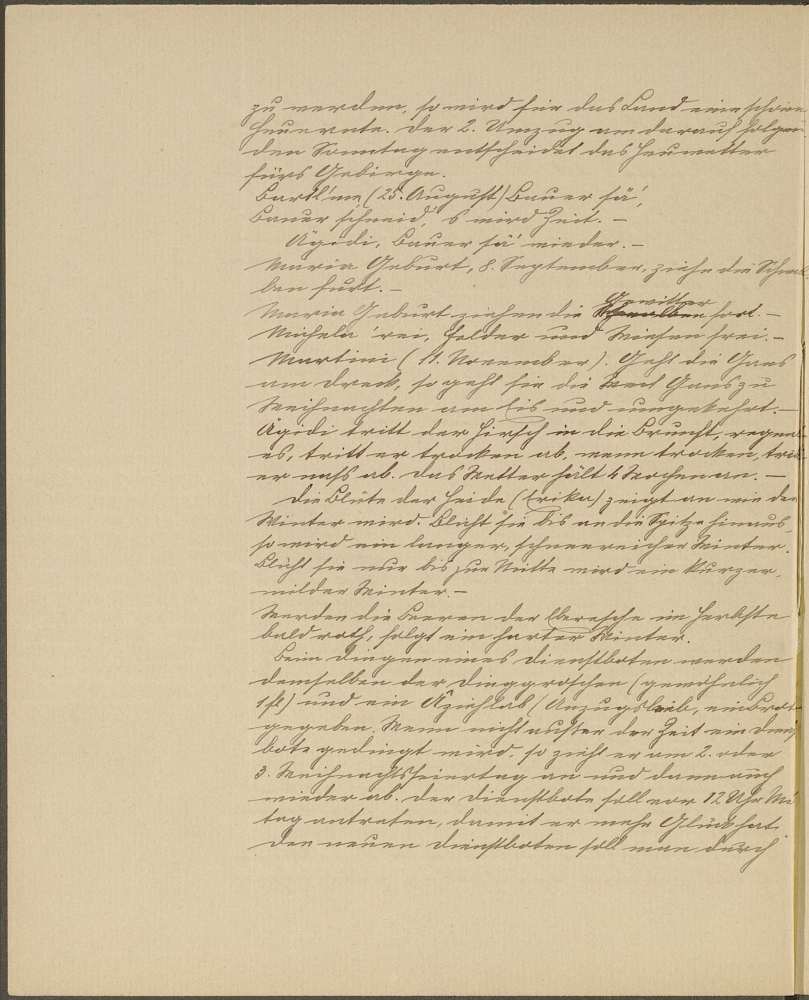 zu werden, so wird für das Land eine schöne
Heuernte. Der 2. Umzug am darauf folgen-
den Sonntag entscheidet das Heuwetter
fürs Gebirge.
Bartl'me (25. August) Bauer sä',
Bauer schneid', 's wird Zeit. –
Ägidi, Bauer sä' wieder. –
Maria Geburt, 8. September, ziehe die Schwal
ben furt. –
Maria Geburt ziehen die Gewitter fort. –
Michela 'rei, Felder und Wiesen frei. –
Martini (11. November). Geht die Gans
am Dreck, so geht sie die Gans zu
Weihnachten am Eis und umgekehrt. –
Ägidi tritt der Hirsch in die Brunft, regnet
es, tritt er trocken ab, wenn trocken, tritt
er naß ab. Das Wetter hält 4 Wochen an. –
Die Blüte der Heide (Erika) zeigt an wie der
Winter wird. Blüht sie bis an die Spitze hinaus,
so wird ein langer, schneereicher Winter.
Blüht sie nur bis zur Mitte wird ein kurzer,
milder Winter. –
Werden die Beeren der Eberesche im Herbste
bald roth, folgt ein harter Winter.
Beim Dingen eines Dienstboten werden
demselben der Dinggroschen (gewöhnlich
1 fl) und ein Aziehlab (Anzugsleib, ein Brot
gegeben. Wenn nicht außer der Zeit ein Dienst
bote gedingt wird, so zieht er am 2. oder
3. Weihnachtsfeiertag an und dann auch
wieder ab. Der Dienstbote soll vor 12 Uhr Mit
tag antreten, damit er mehr Glück hat.
Den neuen Dienstboten soll man durch